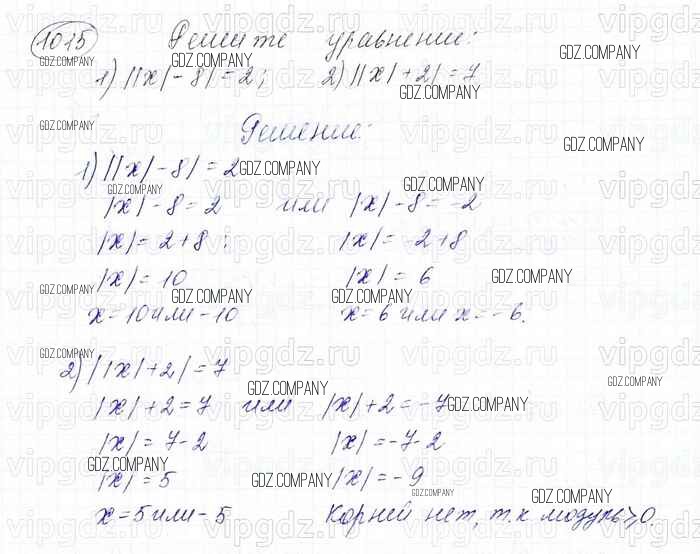 1015 Решите уравнение:
1) ||x| - 8| = 2; 2) ||x| + 2| = 7
Решение:
1) ||x| - 8| = 2
|x| - 8 = 2 или |x| - 8 = -2
|x| = 2 + 8; |x| = -2 + 8
|x| = 10 |x| = 6
x = 10 или -10 x = 6 или x = -6.
2) ||x| + 2| = 7
|x| + 2 = 7 или |x| + 2 = -7
|x| = 7 - 2 |x| = -7 - 2
|x| = 5 |x| = -9
x = 5 или -5 Корней нет, т.к модуль ≥ 0.
GDZ.COMPANY
vipgdz.ru